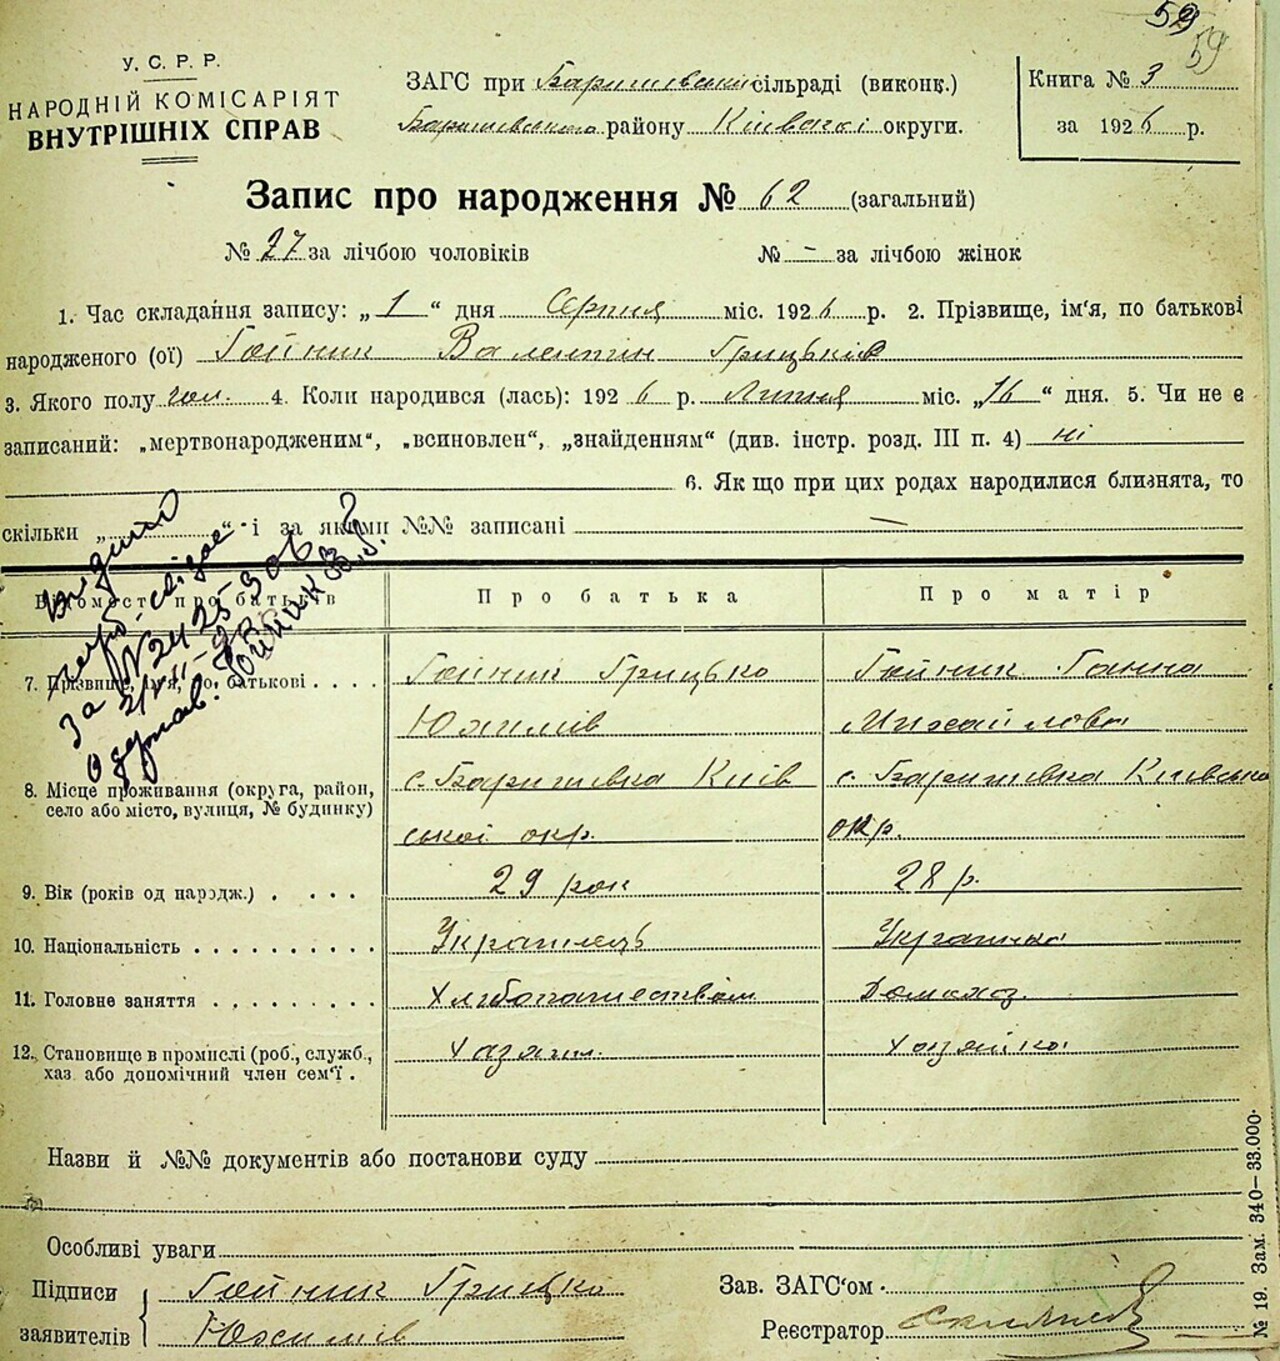 59
59
У. С. Р. Р.
НАРОДНІЙ КОМІСАРІЯТ
ВНУТРІШНІХ СПРАВ
ЗАГС при Баришівській сільраді (виконк.)
Баришівського району Київської округи.
Книга № 3
за 1926 р.
Запис про народження № 62 (загальний)
№ 27 за лічбою чоловіків № – за лічбою жінок
1. Час складання запису: „ 1 “ дня Серпня міс. 1926 р. 2. Прізвище, ім‘я, по батькові
народженого (ої) Гайник Валентін Грицьків
3. Якого полу чол. 4. Коли народився (лась): 1926 р. Липня міс. „16“ дня. 5. Чи не є
записаний: „мертвонародженим“, „всиновлен“, „знайденням“ (див. інстр. розд. III п. 4) ні
6. Як що при цих родах народилися близнята, то
скільки „ “ і за якими №№ записані —
Відомості про батьків
Про батька
Про матір
7. Прізвище, ім‘я, по батькові
Гайник Грицько
Гайник Ганна
Юхимів
Михайлова
8. Місце проживання (округа, район,
село або місто, вулиця, № будинку)
с. Баришівка Київ
с. Баришівка Київсько
ської окр.
окр.
9. Вік (років од нарсдж.)
29 рок
28 р.
10. Національність
Українець
Українка
11. Головне заняття
Хлибопашеством
Домахоз.
12. Становище в промислі (роб., служб.,
хаз. або допомічний член сем‘ї.
Хазяїн.
Хозяйка
Назви й №№ документів або постанови суду
Особливі уваги
Підписи
заявителів
Гайник Грицко
Юхимів
Зав. ЗАГС‘ом
Реєстратор
№ 19. Зам. 340—33.000.